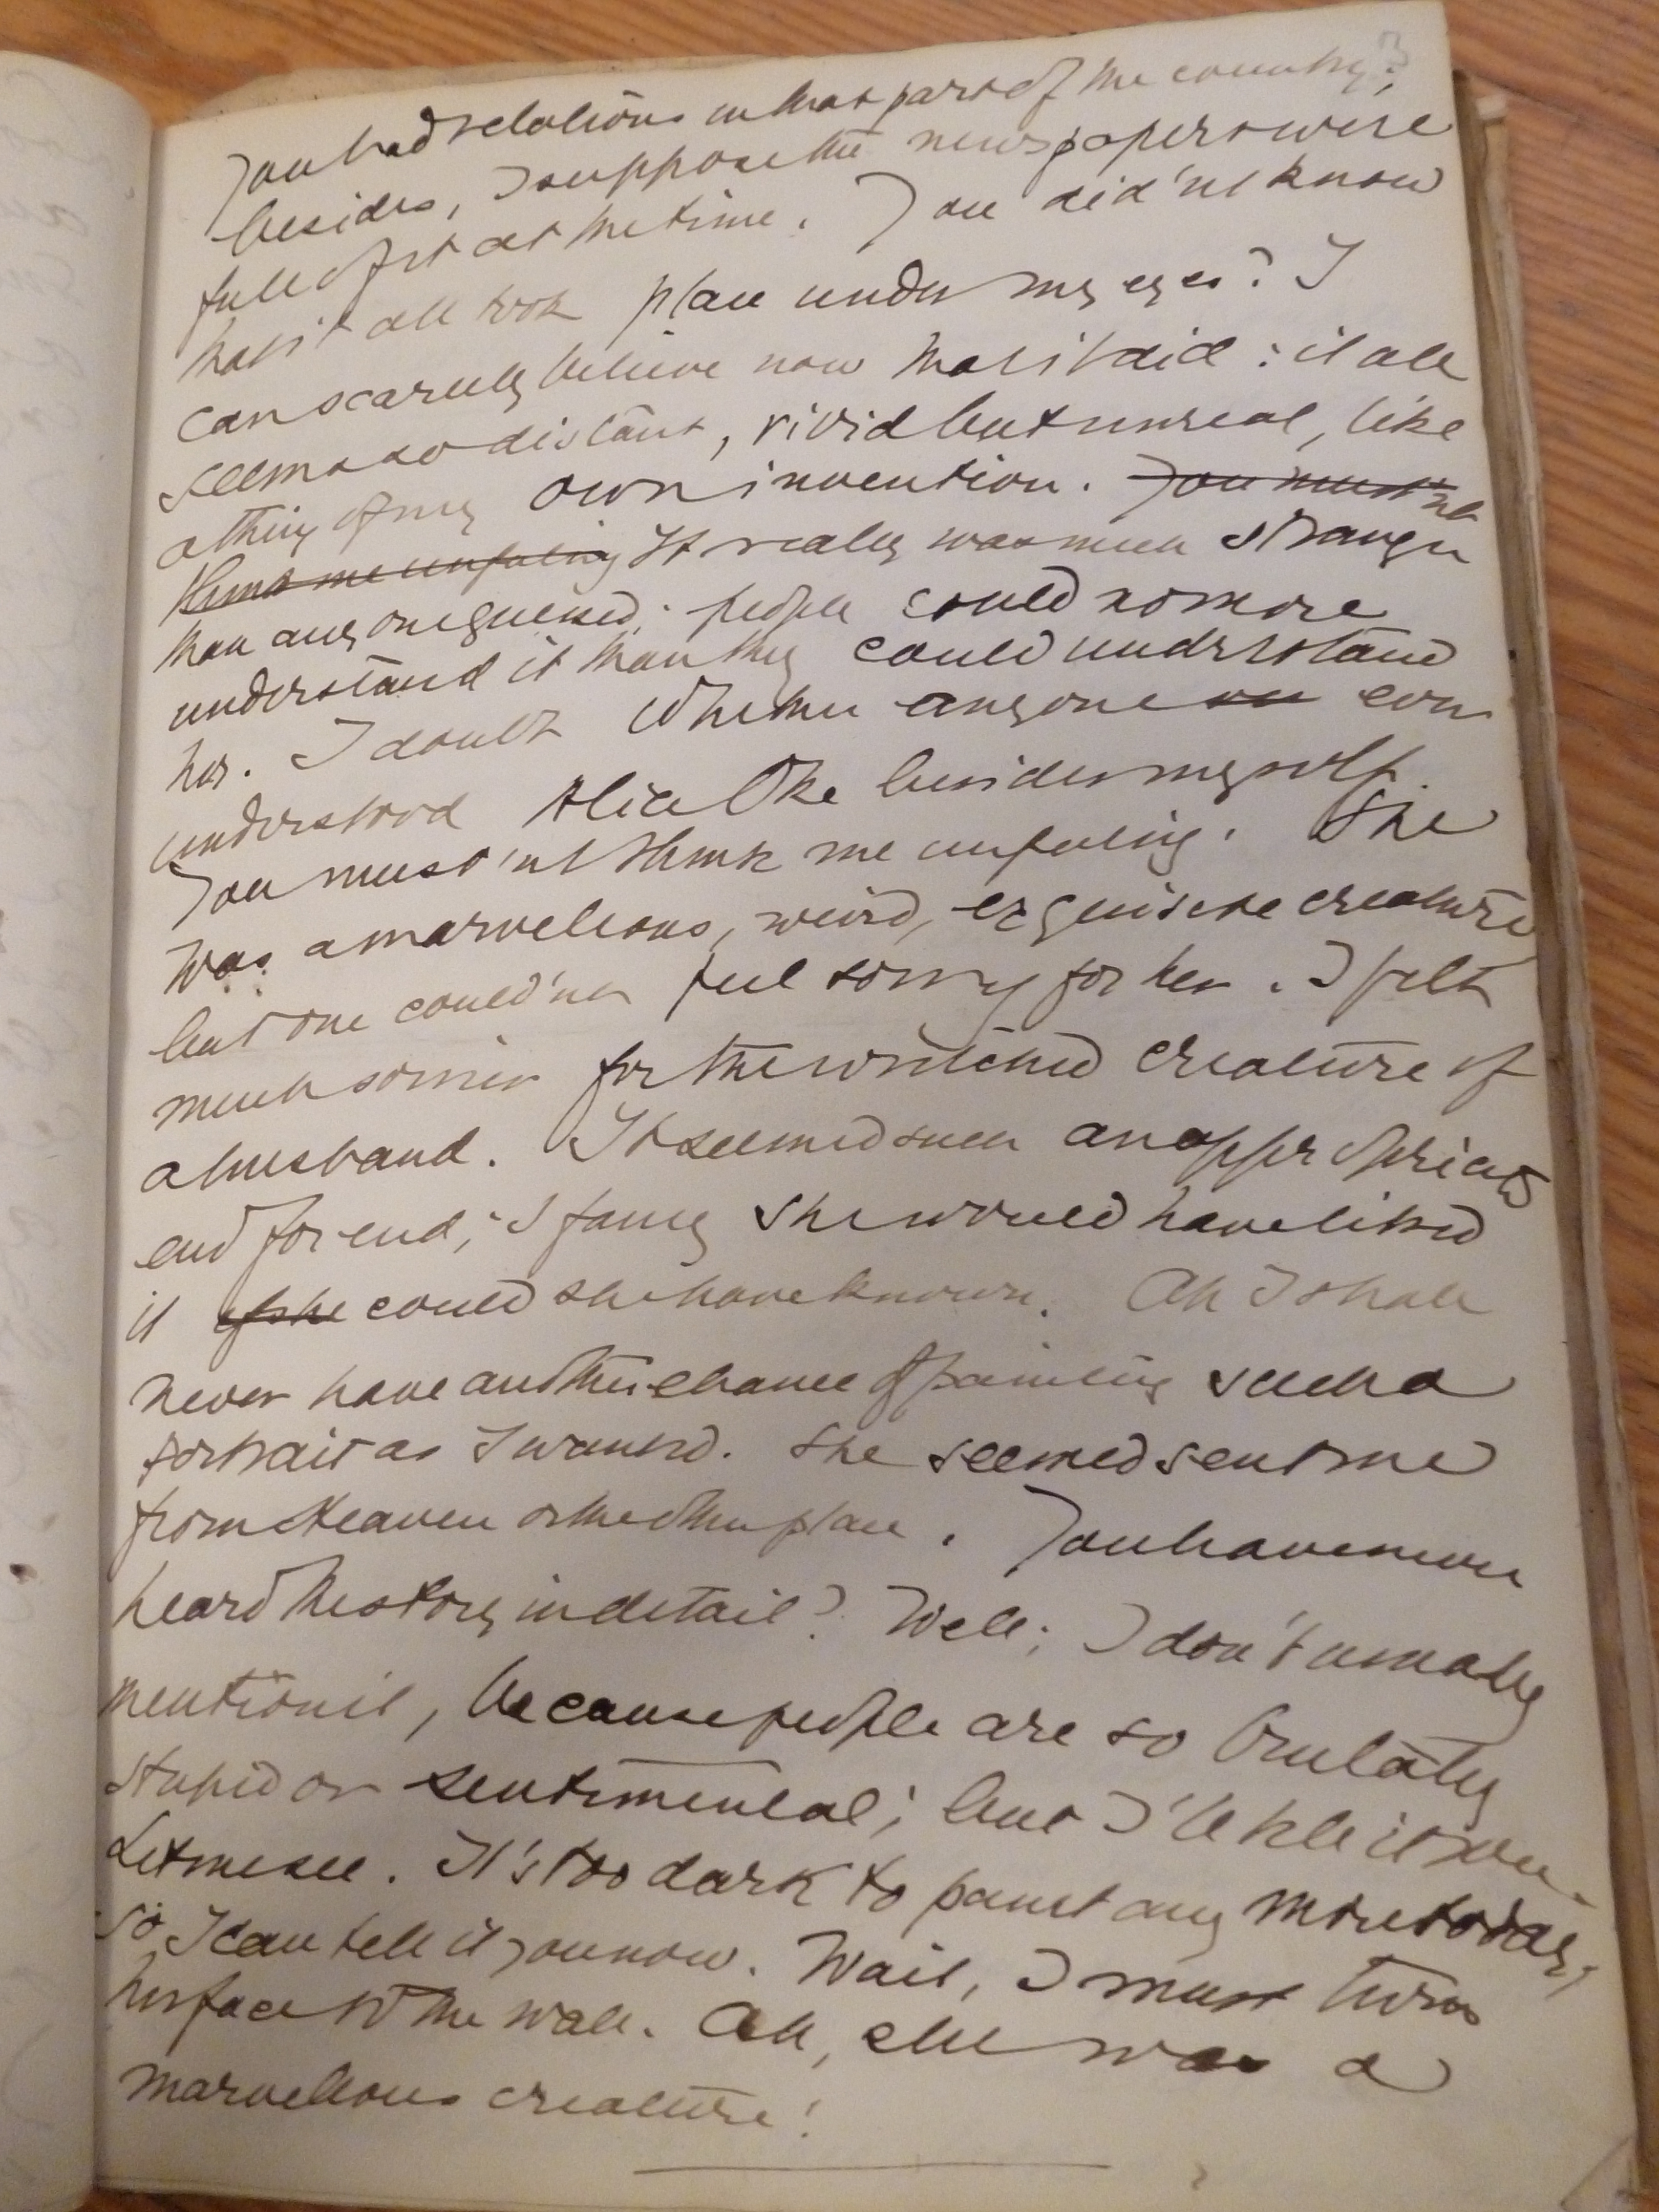 You had relations in that part of the country?;
besides, I suppose the newspapers were
full of it at the time. You did'nt know
that it all took place under my eyes? I
can scarcely believe now that it did: it all
seems so distant, vivid but unreal, like
a thing of my own invention. You must'nt
think me unfeeling It really was much stranger
than any one guessed; people could no more
understand it than they could understand
her. I doubt whether anyone ever
understood Alice Oke besides myself.
You must'nt think me unfeeling. She
was a marvellous, weird, exquisite creature
but one could'nt feel sorry for her. I felt
much sorrier for the wretched creature of
a husband. It seemed such an appropriate
end for end; I fancy she would have liked
it if she could she have known. Ah I shall
never have another chance of painting such a
portrait as I wanted. She seemed sent me
from Heaven or the other place. You have never
heard the story in detail? Well; I don't usually
mention it, because people are so brutally
stupid or sentimental; but I'll tell it you.
Let me see. It's too dark to paint any more today,
so I can tell it you now. Wait, I must turn
her face to the wall. Ah, she was a
marvellous creature!